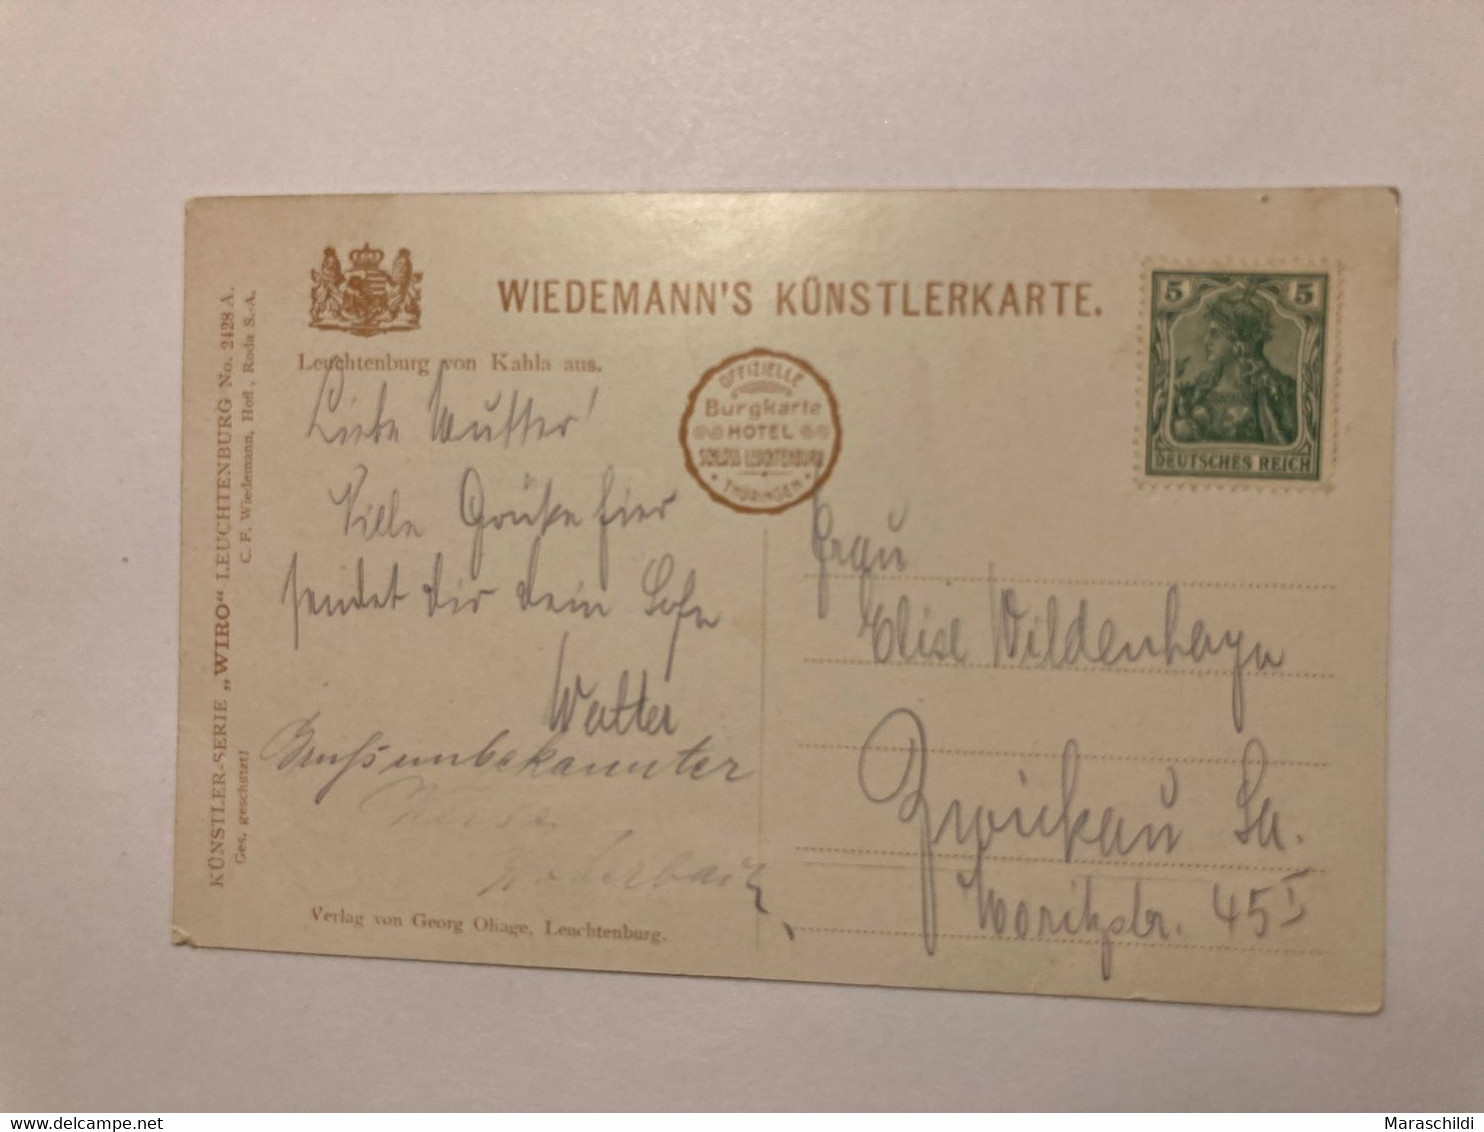 WIEDEMANN'S KÜNSTLERKARTE.
Leuchtenburg von Kahla aus.
OFFIZIELLE
Burgkarte
HOTEL
SCHLOSS LEUCHTENBURG
THÜRINGEN
5 5
DEUTSCHES REICH
KÜNSTLER-SERIE „WIRO“ LEUCHTENBURG No. 2428 A.
Ges. geschützt! C. F. Wiedemann, Hofl., Roda S.-A.
Liebe Mutter!
Viele Grüße hier
sendet dir dein Sohn
Walter
Gruß unbekannter
Weise
Verlag von Georg Ohage, Leuchtenburg.
Frau
Elise Wildenhayn
Zwickau Sa.
Moritzstr. 45 I
delcampe.net
Maraschildi